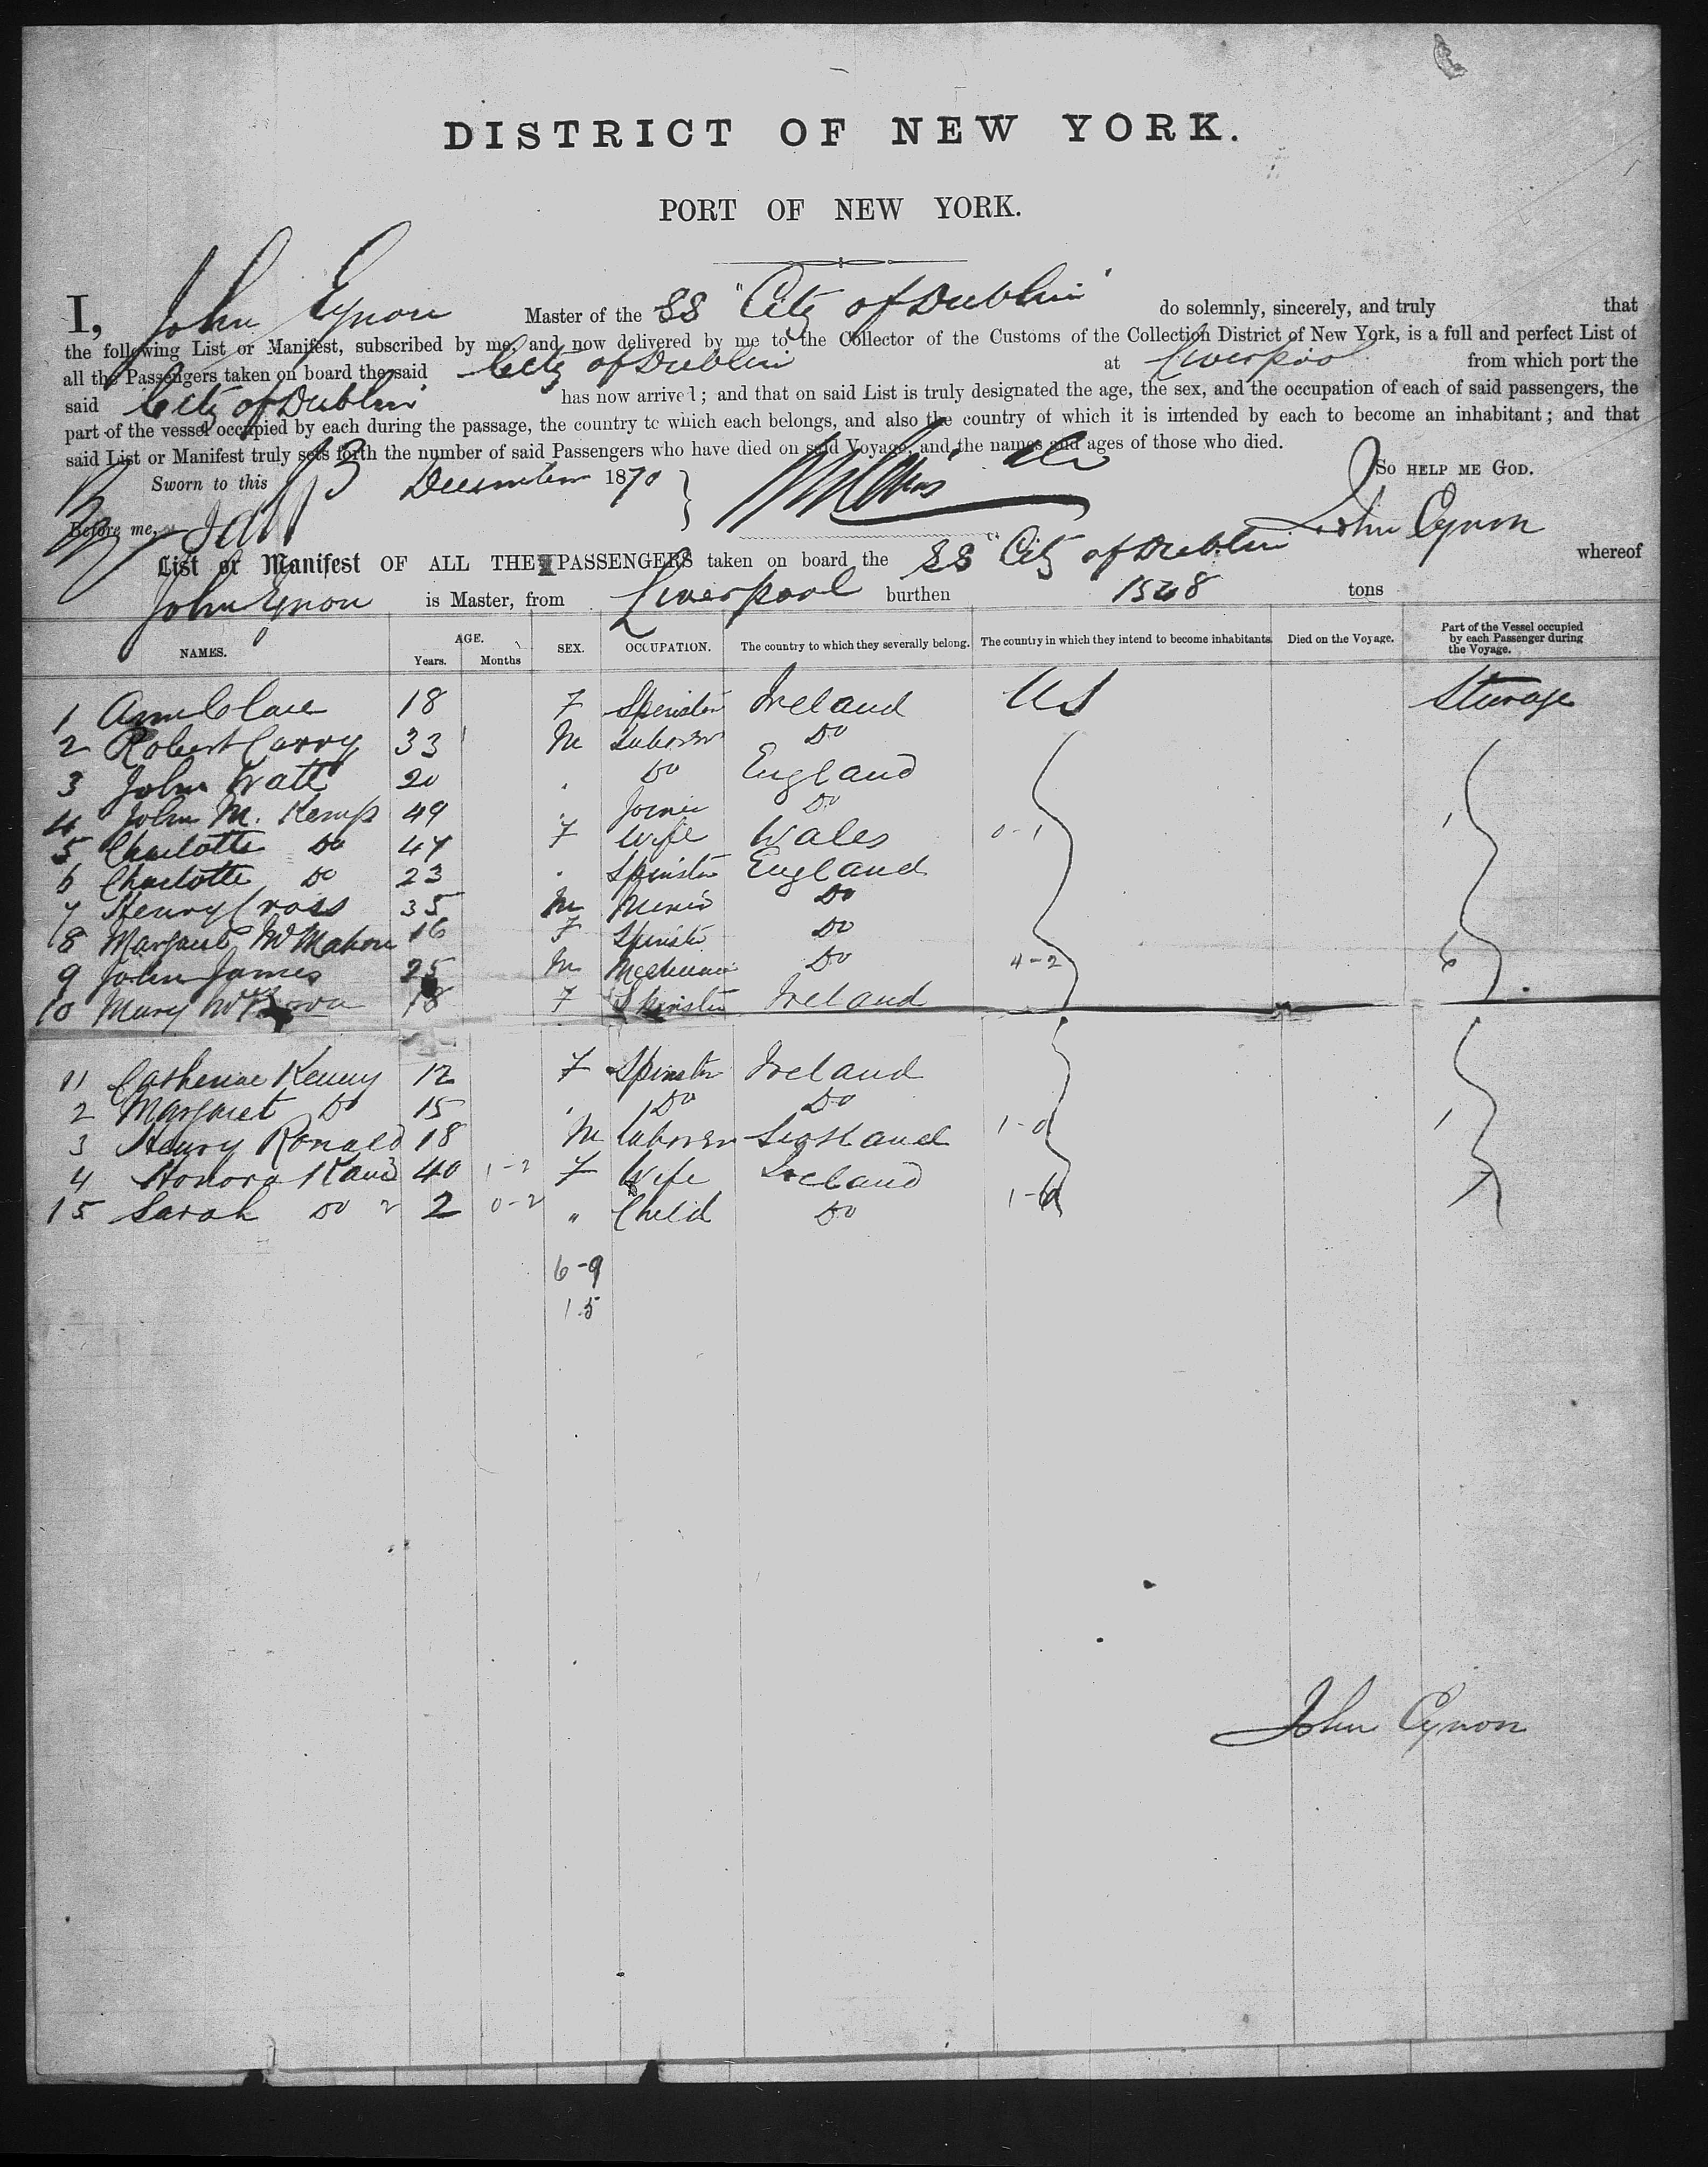 DISTRICT OF NEW YORK.
PORT OF NEW YORK.
I, John Eynon Master of the SS "City of Dublin" do solemnly, sincerely, and truly that
the following List or Manifest, subscribed by me, and now delivered by me to the Collector of the Customs of the Collection District of New York, is a full and perfect List of
all the Passengers taken on board the said City of Dublin at Liverpool from which port the
said City of Dublin has now arrived; and that on said List is truly designated the age, the sex, and the occupation of each of said passengers, the
part of the vessel occupied by each during the passage, the country to which each belongs, and also the country of which it is intended by each to become an inhabitant; and that
said List or Manifest truly sets forth the number of said Passengers who have died on said Voyage, and the names and ages of those who died.
So HELP ME GOD.
Sworn to this 13 December 1870
Before me, John Eynon
List or Manifest OF ALL THE PASSENGERS taken on board the SS "City of Dublin whereof
John Eynon is Master, from Liverpool burthen tons
NAMES. AGE. Years. Months SEX. OCCUPATION. The country to which they severally belong. The country in which they intend to become inhabitants. Died on the Voyage. Part of the Vessel occupied by each Passenger during the Voyage.
1 Ann Clare 18 F Spinster Ireland US Steerage
2 Robert Carry 33 M Laborer Do
3 John Watt 20 Do England
4 John M. Kemp 49 Joiner Do
5 Charlotte Do 47 F Wife Wales 0-1 1
6 Charlotte Do 23 Spinster England
7 Henry Cross 35 M Miner Do
8 Margaret McMahon 16 F Spinster Do
9 John James 25 M Mechanic Do 4-2 6
10 Mary 18 F Spinster Ireland
11 Catherine Kenny 12 F Spinster Ireland
2 Margaret Do 15 Do Do
3 Henry Ronald 18 M Laborer Scotland 1-0 1
4 Honora 40 1-2 F Wife Ireland
15 Sarah Do 2 2 0-2 " Child Do
6-9
15
John Eynon